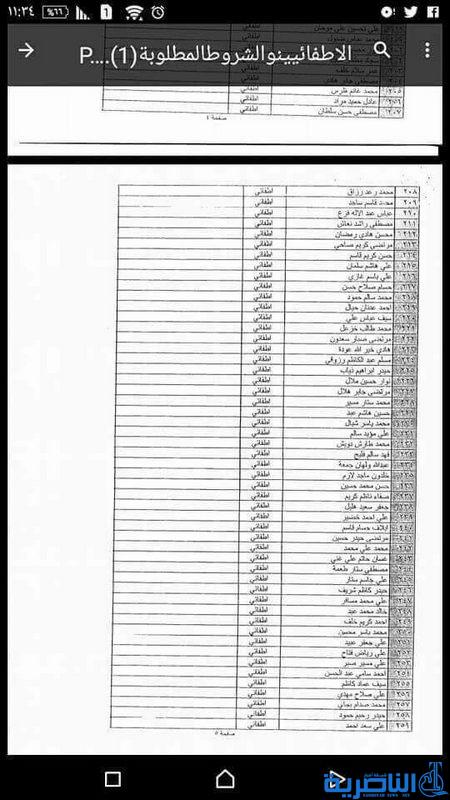 ١١:٣٤
٪٦٦
الاطفائيينوالشروطالمطلوبة(1)....P
٢٠٥ محمد غانم طرس اطفائي
٢٠٦ عادل حميد مراد اطفائي
٢٠٧ مصطفى حسن سلطان اطفائي
صفحة ٤
٢٠٨ محمد رعد رزاق اطفائي
٢٠٩ محمد قاسم ساجد اطفائي
٢١٠ عباس عبد الاله فرع اطفائي
٢١١ مصطفى راشد نعاش اطفائي
٢١٢ محسن هادي رمضان اطفائي
٢١٣ مرتضى كريم صاحي اطفائي
٢١٤ حسن كريم قاسم اطفائي
٢١٥ علي هاشم سلمان اطفائي
٢١٦ علي باسم غازي اطفائي
٢١٧ حسام صلاح حسن اطفائي
٢١٨ محمد سالم حمود اطفائي
٢١٩ احمد عدنان جبال اطفائي
٢٢٠ سيف عباس علي اطفائي
٢٢١ محمد طالب خزعل اطفائي
٢٢٢ مرتضى صدار سعدون اطفائي
٢٢٣ هادي خير الله عودة اطفائي
٢٢٤ مسلم عبد الكاظم رزوقي اطفائي
٢٢٥ حيدر ابراهيم ذياب اطفائي
٢٢٦ نوار حسين ملال اطفائي
٢٢٧ مرتضى جابر هلال اطفائي
٢٢٨ محمد ستار مسير اطفائي
٢٢٩ حسين هاشم عبد اطفائي
٢٣٠ محمد ياسر شيال اطفائي
٢٣١ علي مؤيد سالم اطفائي
٢٣٢ محمد طارش دويش اطفائي
٢٣٣ فهد سالم فليح اطفائي
٢٣٤ عبدالله ولهان جمعة اطفائي
٢٣٥ خلدون ماجد لازم اطفائي
٢٣٦ حسن محمد حسين اطفائي
٢٣٧ صفاء ناظم كريم اطفائي
٢٣٨ جعفر سعيد فليل اطفائي
٢٣٩ علي احمد خضير اطفائي
٢٤٠ ايلاف حسام قاسم اطفائي
٢٤١ مرتضى حيدر حسين اطفائي
٢٤٢ محمد علي محمد اطفائي
٢٤٣ غسان حاتم علي غني اطفائي
٢٤٤ مصطفى ستار طعمة اطفائي
٢٤٥ علي جاسم ستار اطفائي
٢٤٦ حيدر كاظم شريف اطفائي
٢٤٧ علي محمد مسافر اطفائي
٢٤٨ خالد محمد عبد اطفائي
٢٤٩ احمد كريم خلف اطفائي
٢٥٠ محمد ياسر محسن اطفائي
٢٥١ علي جعفر عبيد اطفائي
٢٥٢ علي رياض فتاح اطفائي
٢٥٣ علي مسير صبر اطفائي
٢٥٤ احمد سامي عبد الحسن اطفائي
٢٥٥ سيف عماد كاظم اطفائي
٢٥٦ علي صلاح مهدي اطفائي
٢٥٧ محمد صدام بجاي اطفائي
٢٥٨ حيدر رحيم حمود اطفائي
٢٥٩ علي سعد احمد اطفائي
صفحة ٥
الناصرية